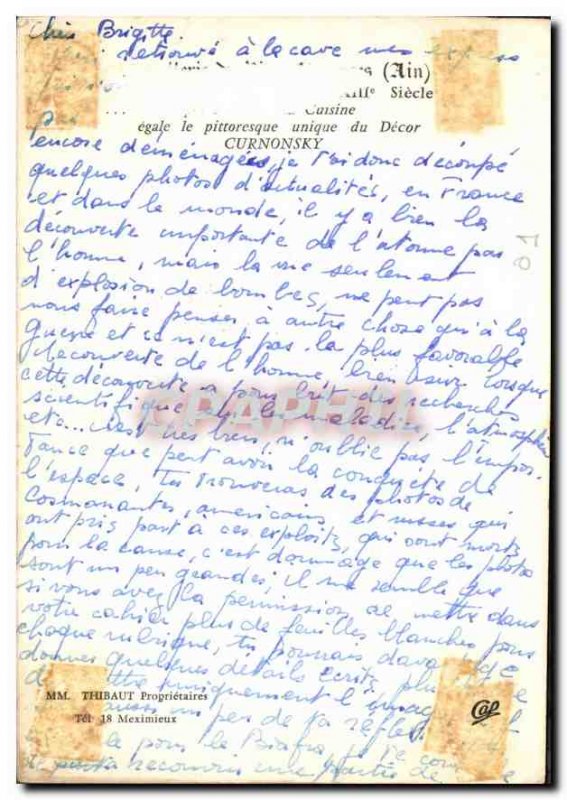 Chère Brigitte
retrouvé à la cave mes
(Ain)
XIIIe Siècle
Cuisine
pas
égale le pittoresque unique du Décor
CURNONSKY
encore déménagées, je t'ai donc découpé
quelques photos d'actualités, en France
et dans le monde, il y a bien la
découverte importante de l'atome pas
l'homme, mais la vue seulement
d'explosion de bombes, ne peut pas
nous faire penser à autre chose qu'à la
guerre et ce n'est pas la plus favorable
découverte de l'homme, bien lorsque
cette découverte a pour but des recherches
scientifiques, l'atmosphère
etc... c'est très bien, n'oublie pas l'impor-
tance que peut avoir la conquête de
l'espace, tu trouveras des photos de
Cosmonautes, américains et russes qui
ont pris part à ces exploits, qui sont morts
pour la cause, c'est dommage que les photos
sont un peu grandes, il me semble que
si vous avez la permission de mettre dans
votre cahier plus de feuilles blanches pour
chaque rubrique, tu pourrais davantage
donner quelques détails écrits, plus
MM. THIBAUT Propriétaires
uniquement
Tél 18 Meximieux
un peu de ta
Cap
pour le Biafra, je te
recouvrir une partie de
01
CPAPHIL